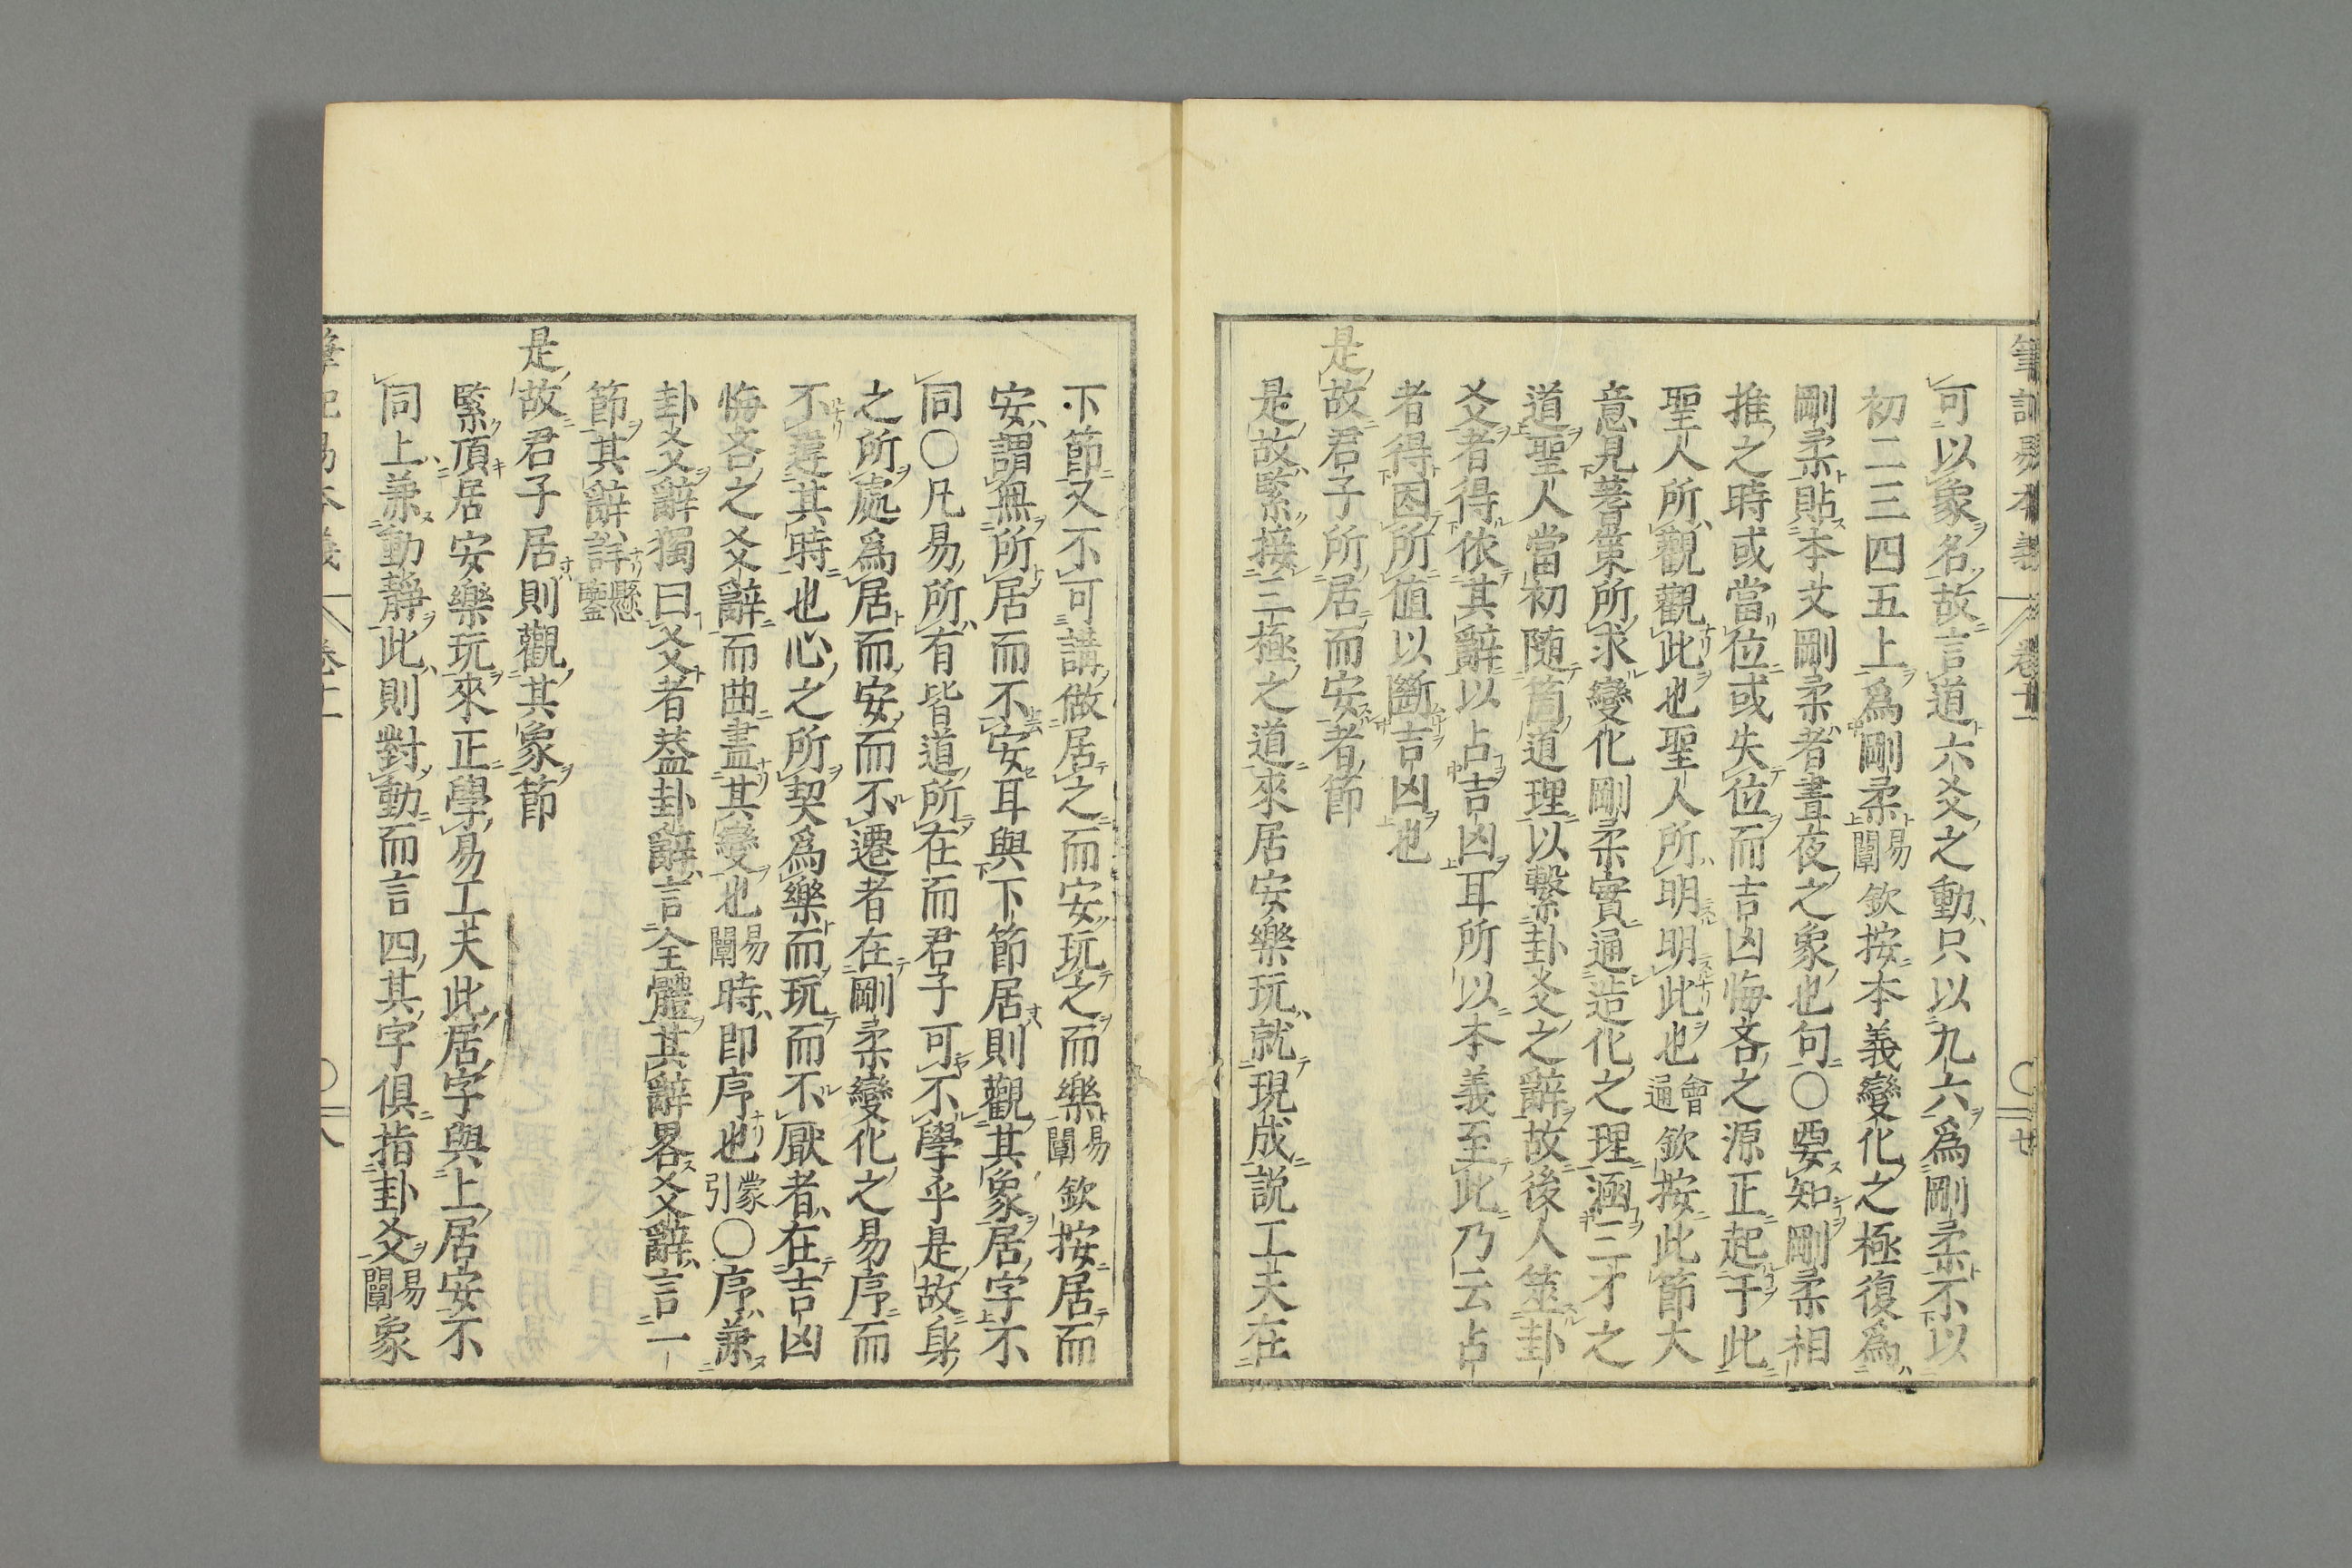 可以象名故言道六爻之動只以九六爲剛柔不以
初二三四五上爲剛柔易闡欽按本義變化之極復爲
剛柔貼本文剛柔者晝夜之象也句〇要知剛柔相
推之時或當位或失位而吉凶悔吝之源正起于此
聖人所觀觀此也聖人所明明此也會通欽按此節大
意見蓍策所求變化剛柔實通造化之理涵三才之
道聖人當初随箇道理以繫卦爻之辭故後人筮卦
爻者得依其辭以占吉凶耳所以本義至此乃云占
者得因所值以斷吉凶也
是故君子所居而安者節
是故緊接三極之道來居安樂玩就現成説工夫在
下節又不可講做居之而安玩之而樂易闡欽按居而
安謂無所居而不安耳與下節居則觀其象居字不
同〇凡易所有皆道所在而君子可不學乎是故身
之所處爲居而安而不遷者在剛柔變化之易序而
不違其時也心之所契爲樂而玩而不厭者在吉凶
悔吝之爻辭而曲盡其變也易闡時即序也蒙引〇序兼
卦爻辭獨曰爻者葢卦辭言全體其辭畧爻辭言一
節其辭詳懸鑒
是故君子居則觀其象節
緊頂居安樂玩來正學易工夫此居字與上居安不
同上兼動静此則對動而言四其字俱指卦爻易闡象